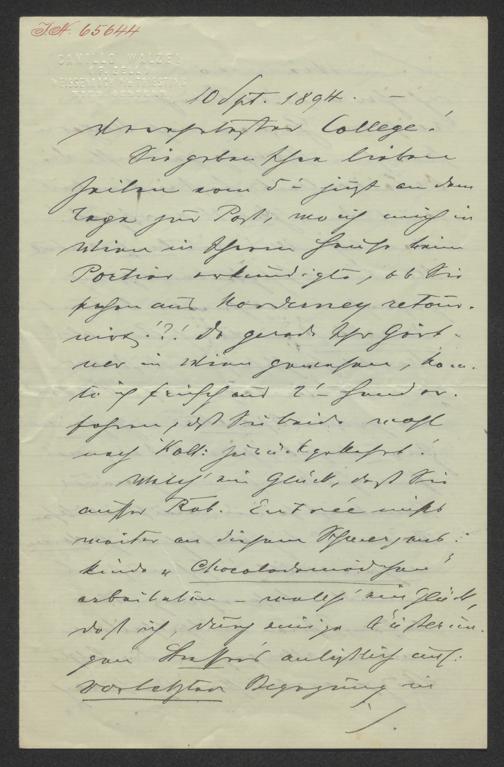 I.N. 65644
CAMILLO WALZEL
10 Spt. 1894. –
Verehrtester College!
Sie gaben Ihre lieben
Zeilen vom 5t. just an dem
Tage zur Post, wo ich mich in
Wien in Ihrem Hause beim
Portier erkundigte, ob Sie
schon aus Norderney retour-
nirt!?! Da gerade Ihr Gärt-
ner in Wien gewesen, kon-
te ich frisch aus 1t. Hand er-
fahren, daß Sie beide wohl
nach zurückgekehrt!
Welch' ein Glück, daß Sie
außer Rob. Entrée nicht
weiter an diesem
kinde „Chocolademädchen"
arbeiteten – welch' ein Glück,
daß ich, durch einige Äußerun-
gen Strauss's anläßlich uns:
vorletzten Begegnung in